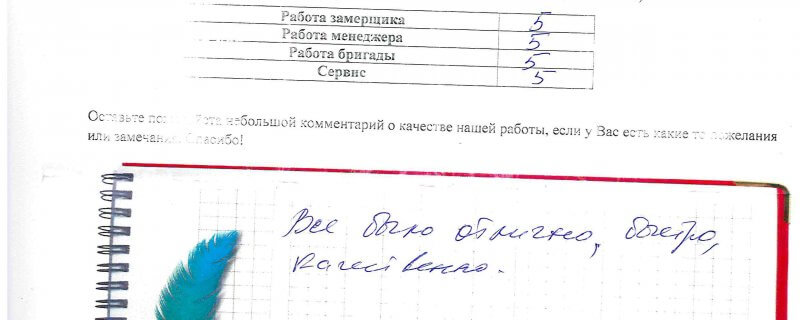 Работа замерщика 5
Работа менеджера 5
Работа бригады 5
Сервис 5
Оставьте небольшой комментарий о качестве нашей работы, если у Вас есть какие то пожелания
или замечания. Спасибо!
Все было отлично, быстро,
качественно.